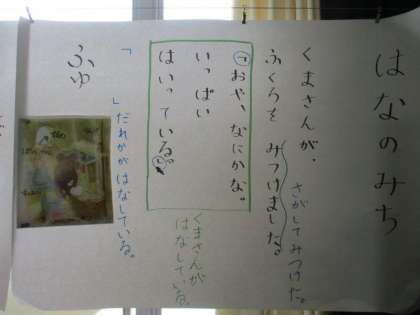 はなのみち
くまさんが、
さがしてみつけた。
ふくろを みつけました。
「おや、なにかな。
いっぱい
はいっている。」
くまさんが
はなしている。
「 」だれかがはなしている。
ふゆ